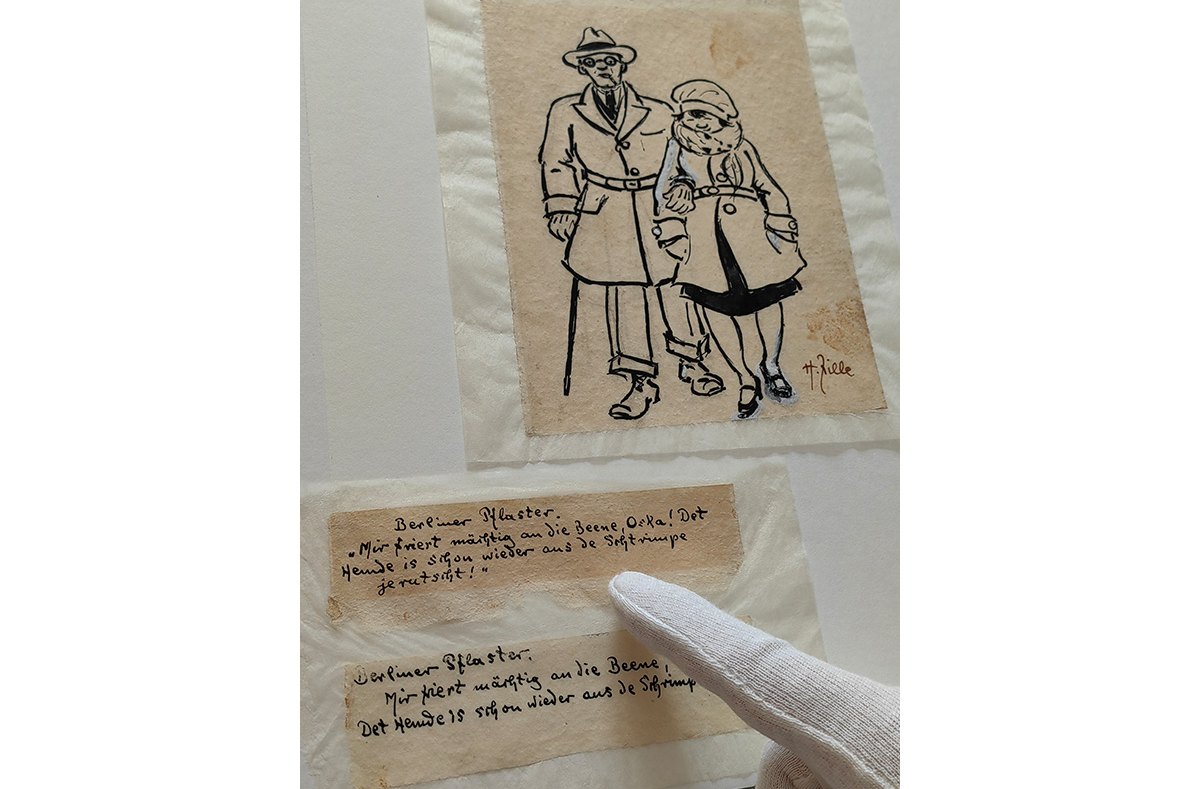 H. Zille
Berliner Pflaster.
„Mir friert mächtig an die Beene, Oska! Det
Hemde is schon wieder aus de Schtrimpe
jerutscht!“
Berliner Pflaster.
Mir friert mächtig an die Beene,
Det Hemde is schon wieder aus de